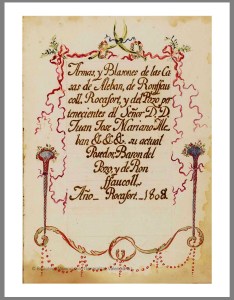 Armas, y Blasones de las Ca
sas de Aleban, de Ronffau
coll, Rocafort, y del Pozo per
tenecientes al Señor D. D.
Juan Jose Mariano Ale
ban &c. &c. &c. su actual
Posedor, Baron del
Pozo y de Ron
ffaucoll.
Año Rocafort. 1808.